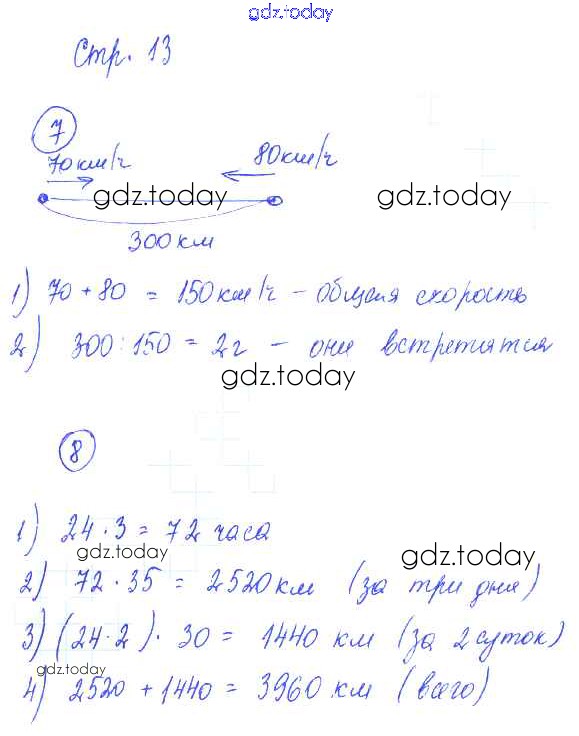 gdz.today
Стр. 13
7
70км/ч 80км/ч
gdz.today gdz.today
300км
1) 70 + 80 = 150км/ч - общая скорость
2) 300 : 150 = 2ч - они встретятся
gdz.today
8
1) 24 · 3 = 72 часа
gdz.today gdz.today
2) 72 · 35 = 2520км (за три дня)
3) (24 · 2) · 30 = 1440 км (за 2 суток)
gdz.today
4) 2520 + 1440 = 3960 км (всего)